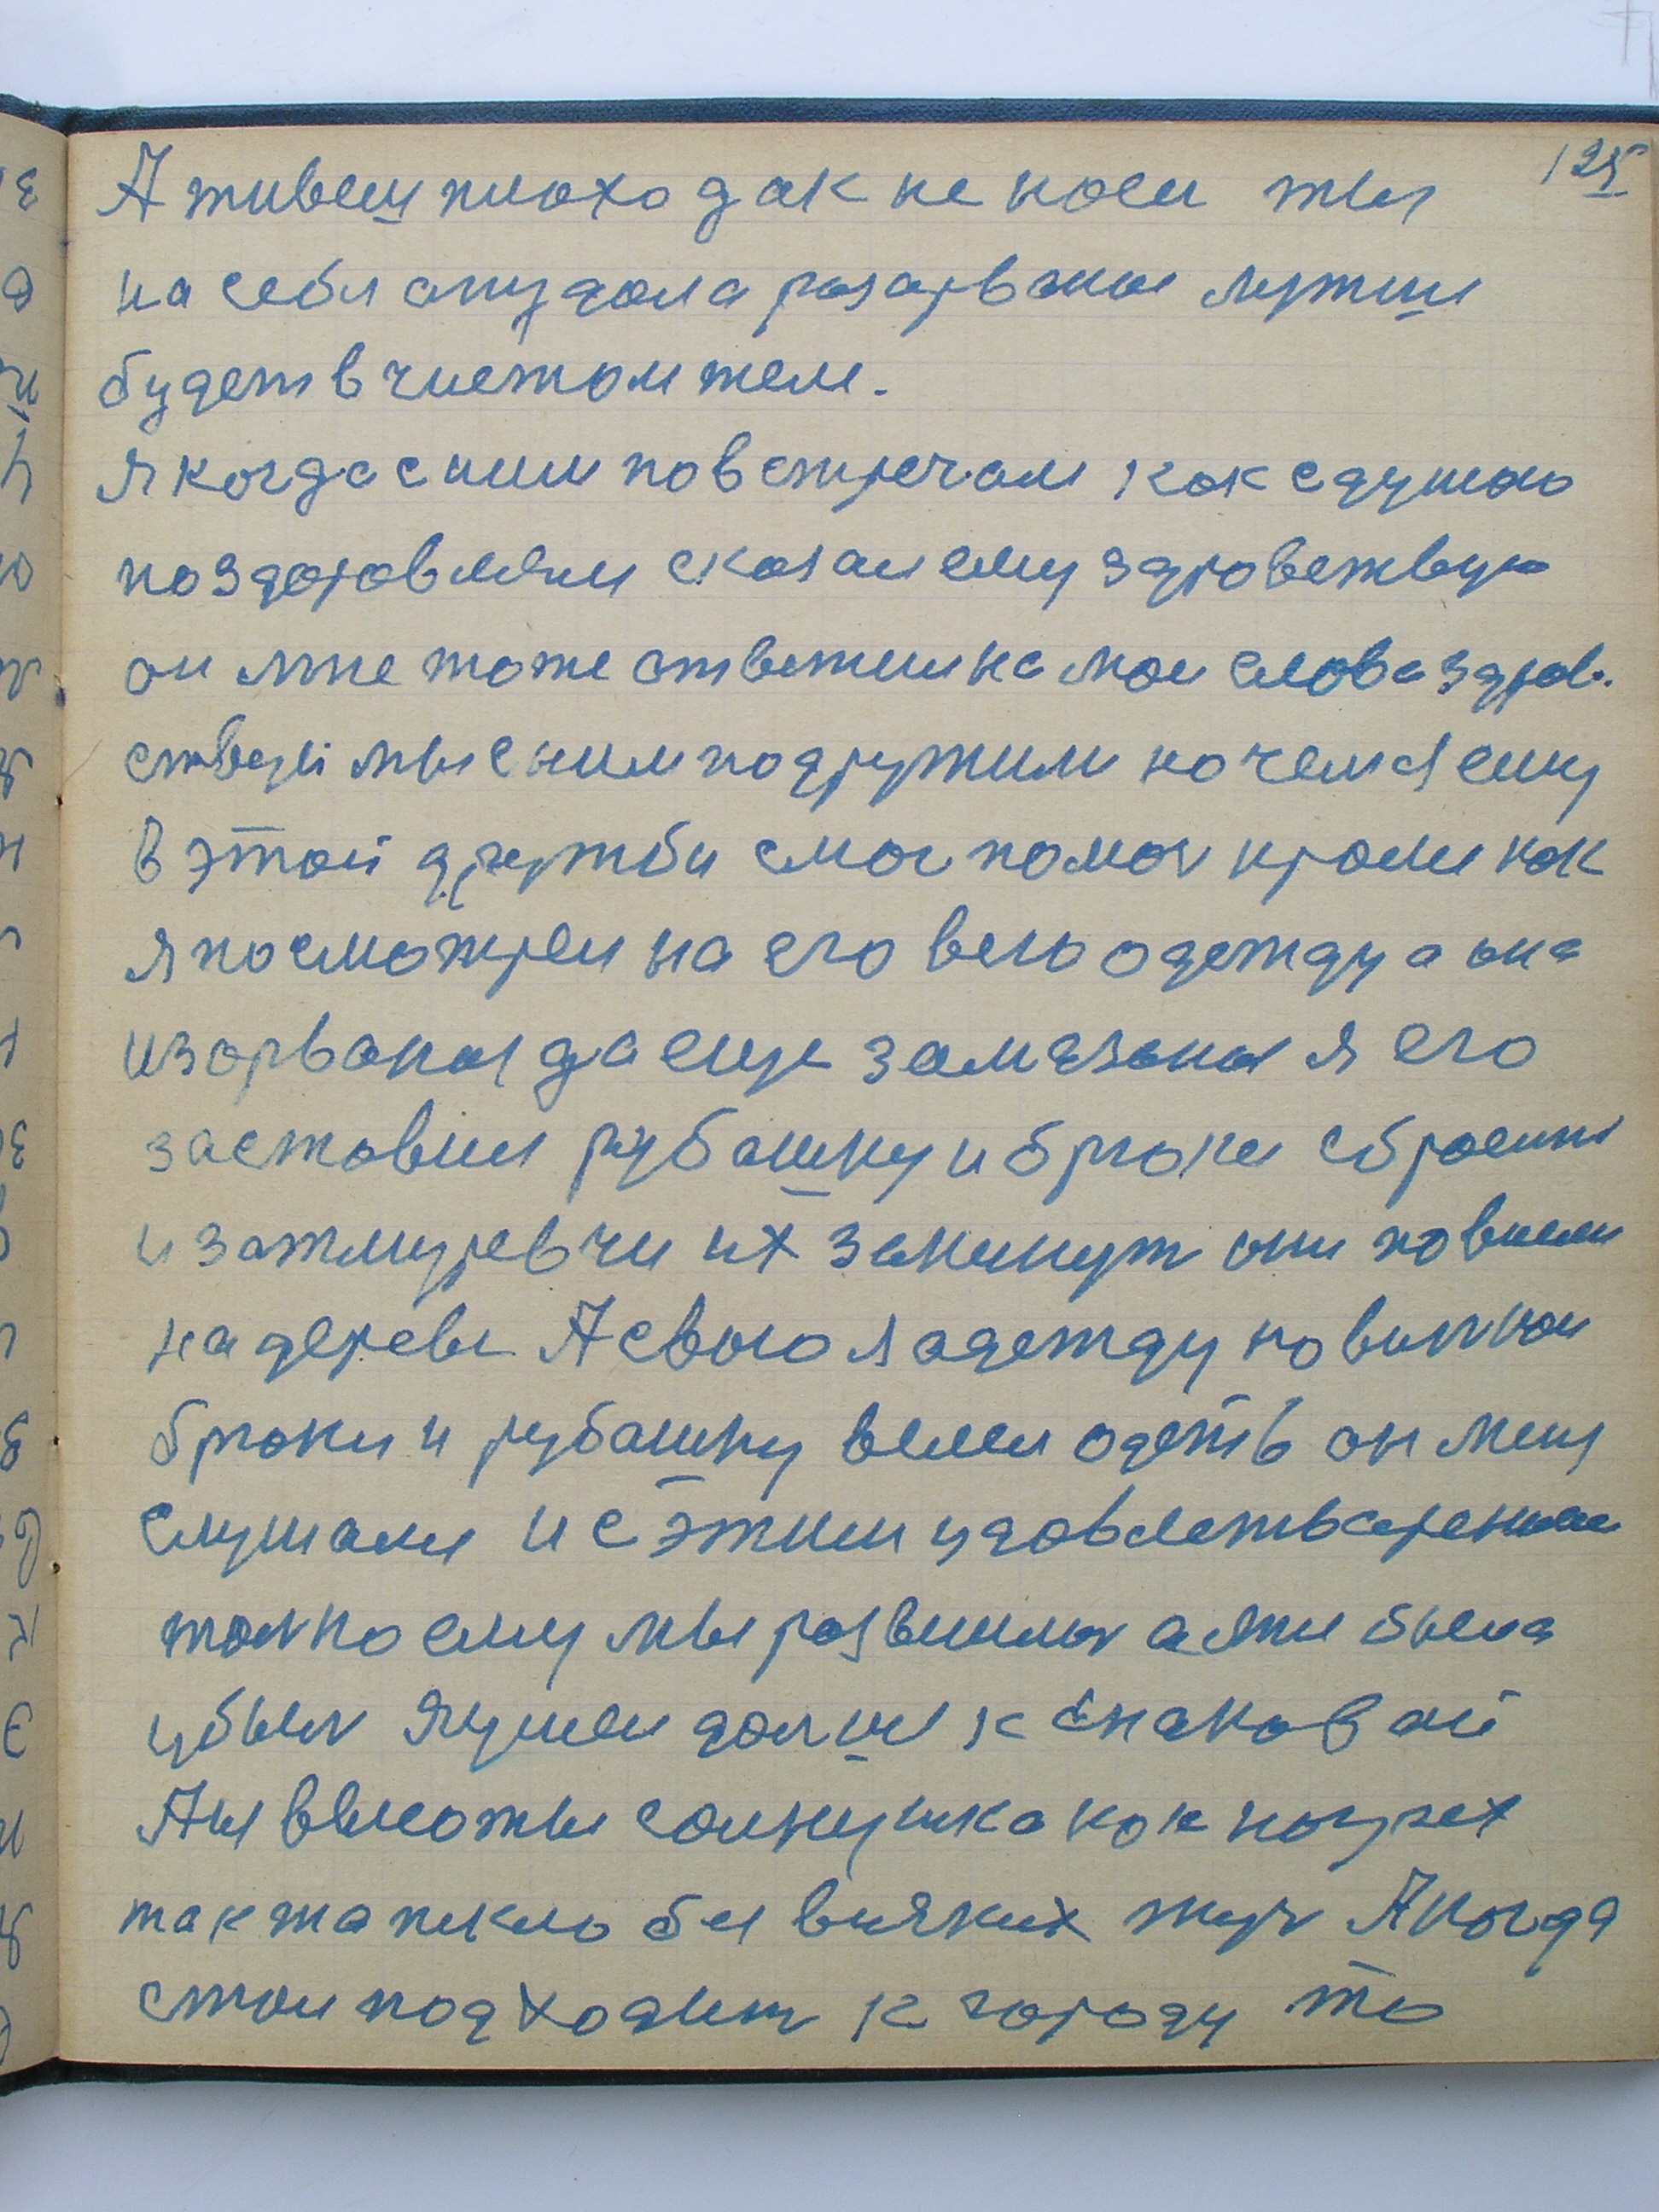 125
А живеш плохо дак не носи ты
на себя опудола разарваная лутши
будет в чистом теле.
Я когда с ним повстречали как с душою
поздоровляли сказал ему здровствую
он мне тоже ответил на мои слова здров.
ствуй мы с ним подружили но чем я ему
в этой дружби смог помоч кроми как
я посмотрел на его всю одежду а она
изорваная да еще замазаная я его
заставил рубашку и брюки сбросит
и зажмуревчи их закинут они повисли
на дереве А свою я одежду новинкои
брюки и рубашку велел одеть он меня
слушали и с этим удовлетварением
толко ему мы развились а
убыл Я ушел далши к Енаковай
Ны высоты солнушка как
так та пекло без всяких туч А когда
стал подходит к городу то